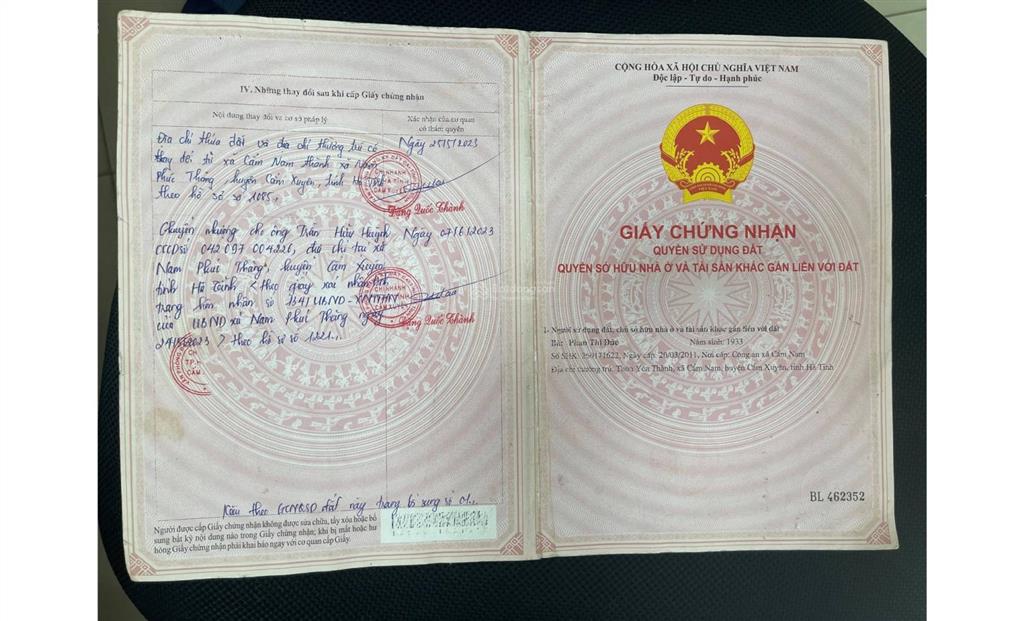 IV. Những thay đổi sau khi cấp Giấy chứng nhận
Nội dung thay đổi và cơ sở pháp lý
Xác nhận của cơ quan
có thẩm quyền
Địa chỉ thửa đất và địa chỉ thường trú có
thay đổi từ xã Cẩm Nam thành xã Nam
Phúc Thăng, huyện Cẩm Xuyên, tỉnh Hà Tĩnh
theo hồ sơ số 1085.
Ngày 25/5/2023
CHI NHÁNH
CẨM XUYÊN
Đặng Quốc Thành
Chuyển nhượng cho ông Trần Hữu Huỳnh
CCCD số 042097004226, địa chỉ tại xã
Nam Phúc Thăng, huyện Cẩm Xuyên
tỉnh Hà Tĩnh < theo giấy xác nhận tình
trạng hôn nhân số 134/UBND-XNTTHN
của UBND xã Nam Phúc Thăng ngày
24/5/2023 > theo hồ sơ số 1221.
Ngày 07/6/2023
CHI NHÁNH
CẨM XUYÊN
Đặng Quốc Thành
Kèm theo GCNQSD đất này trang bổ sung số 01
Người được cấp Giấy chứng nhận không được sửa chữa, tẩy xóa hoặc bổ
sung bất kỳ nội dung nào trong Giấy chứng nhận; khi bị mất hoặc hư
hỏng Giấy chứng nhận phải khai báo ngay với cơ quan cấp Giấy.
CỘNG HÒA XÃ HỘI CHỦ NGHĨA VIỆT NAM
Độc lập - Tự do - Hạnh phúc
GIẤY CHỨNG NHẬN
QUYỀN SỬ DỤNG ĐẤT
QUYỀN SỞ HỮU NHÀ Ở VÀ TÀI SẢN KHÁC GẮN LIỀN VỚI ĐẤT
I. Người sử dụng đất, chủ sở hữu nhà ở và tài sản khác gắn liền với đất
Bà: Phan Thị Đúc Năm sinh: 1933
Số SHK: 290171622, Ngày cấp: 20/03/2011, Nơi cấp: Công an xã Cẩm Nam
Địa chỉ thường trú: Thôn Yên Thành, xã Cẩm Nam, huyện Cẩm Xuyên, tỉnh Hà Tĩnh
BL 462352